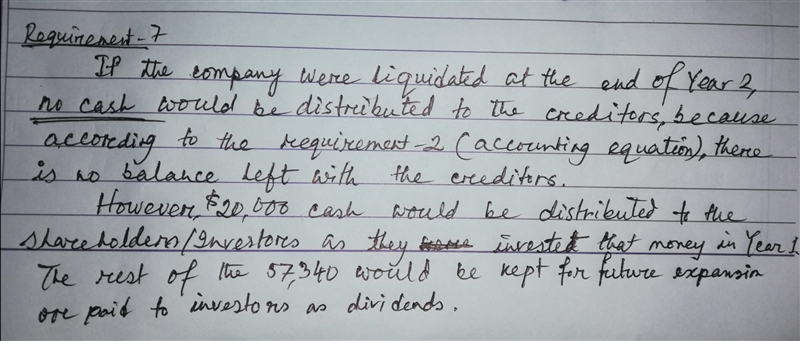 Requirement-7
If the company were liquidated at the end of Year 2,
no cash would be distributed to the creditors, because
according to the requirement-2 (accounting equation), there
is no balance left with the creditors.
However, $20,000 cash would be distributed to the
shareholders/Investors as they invested that money in Year 1.
The rest of the 57,340 would be kept for future expansion
or paid to investors as dividends.